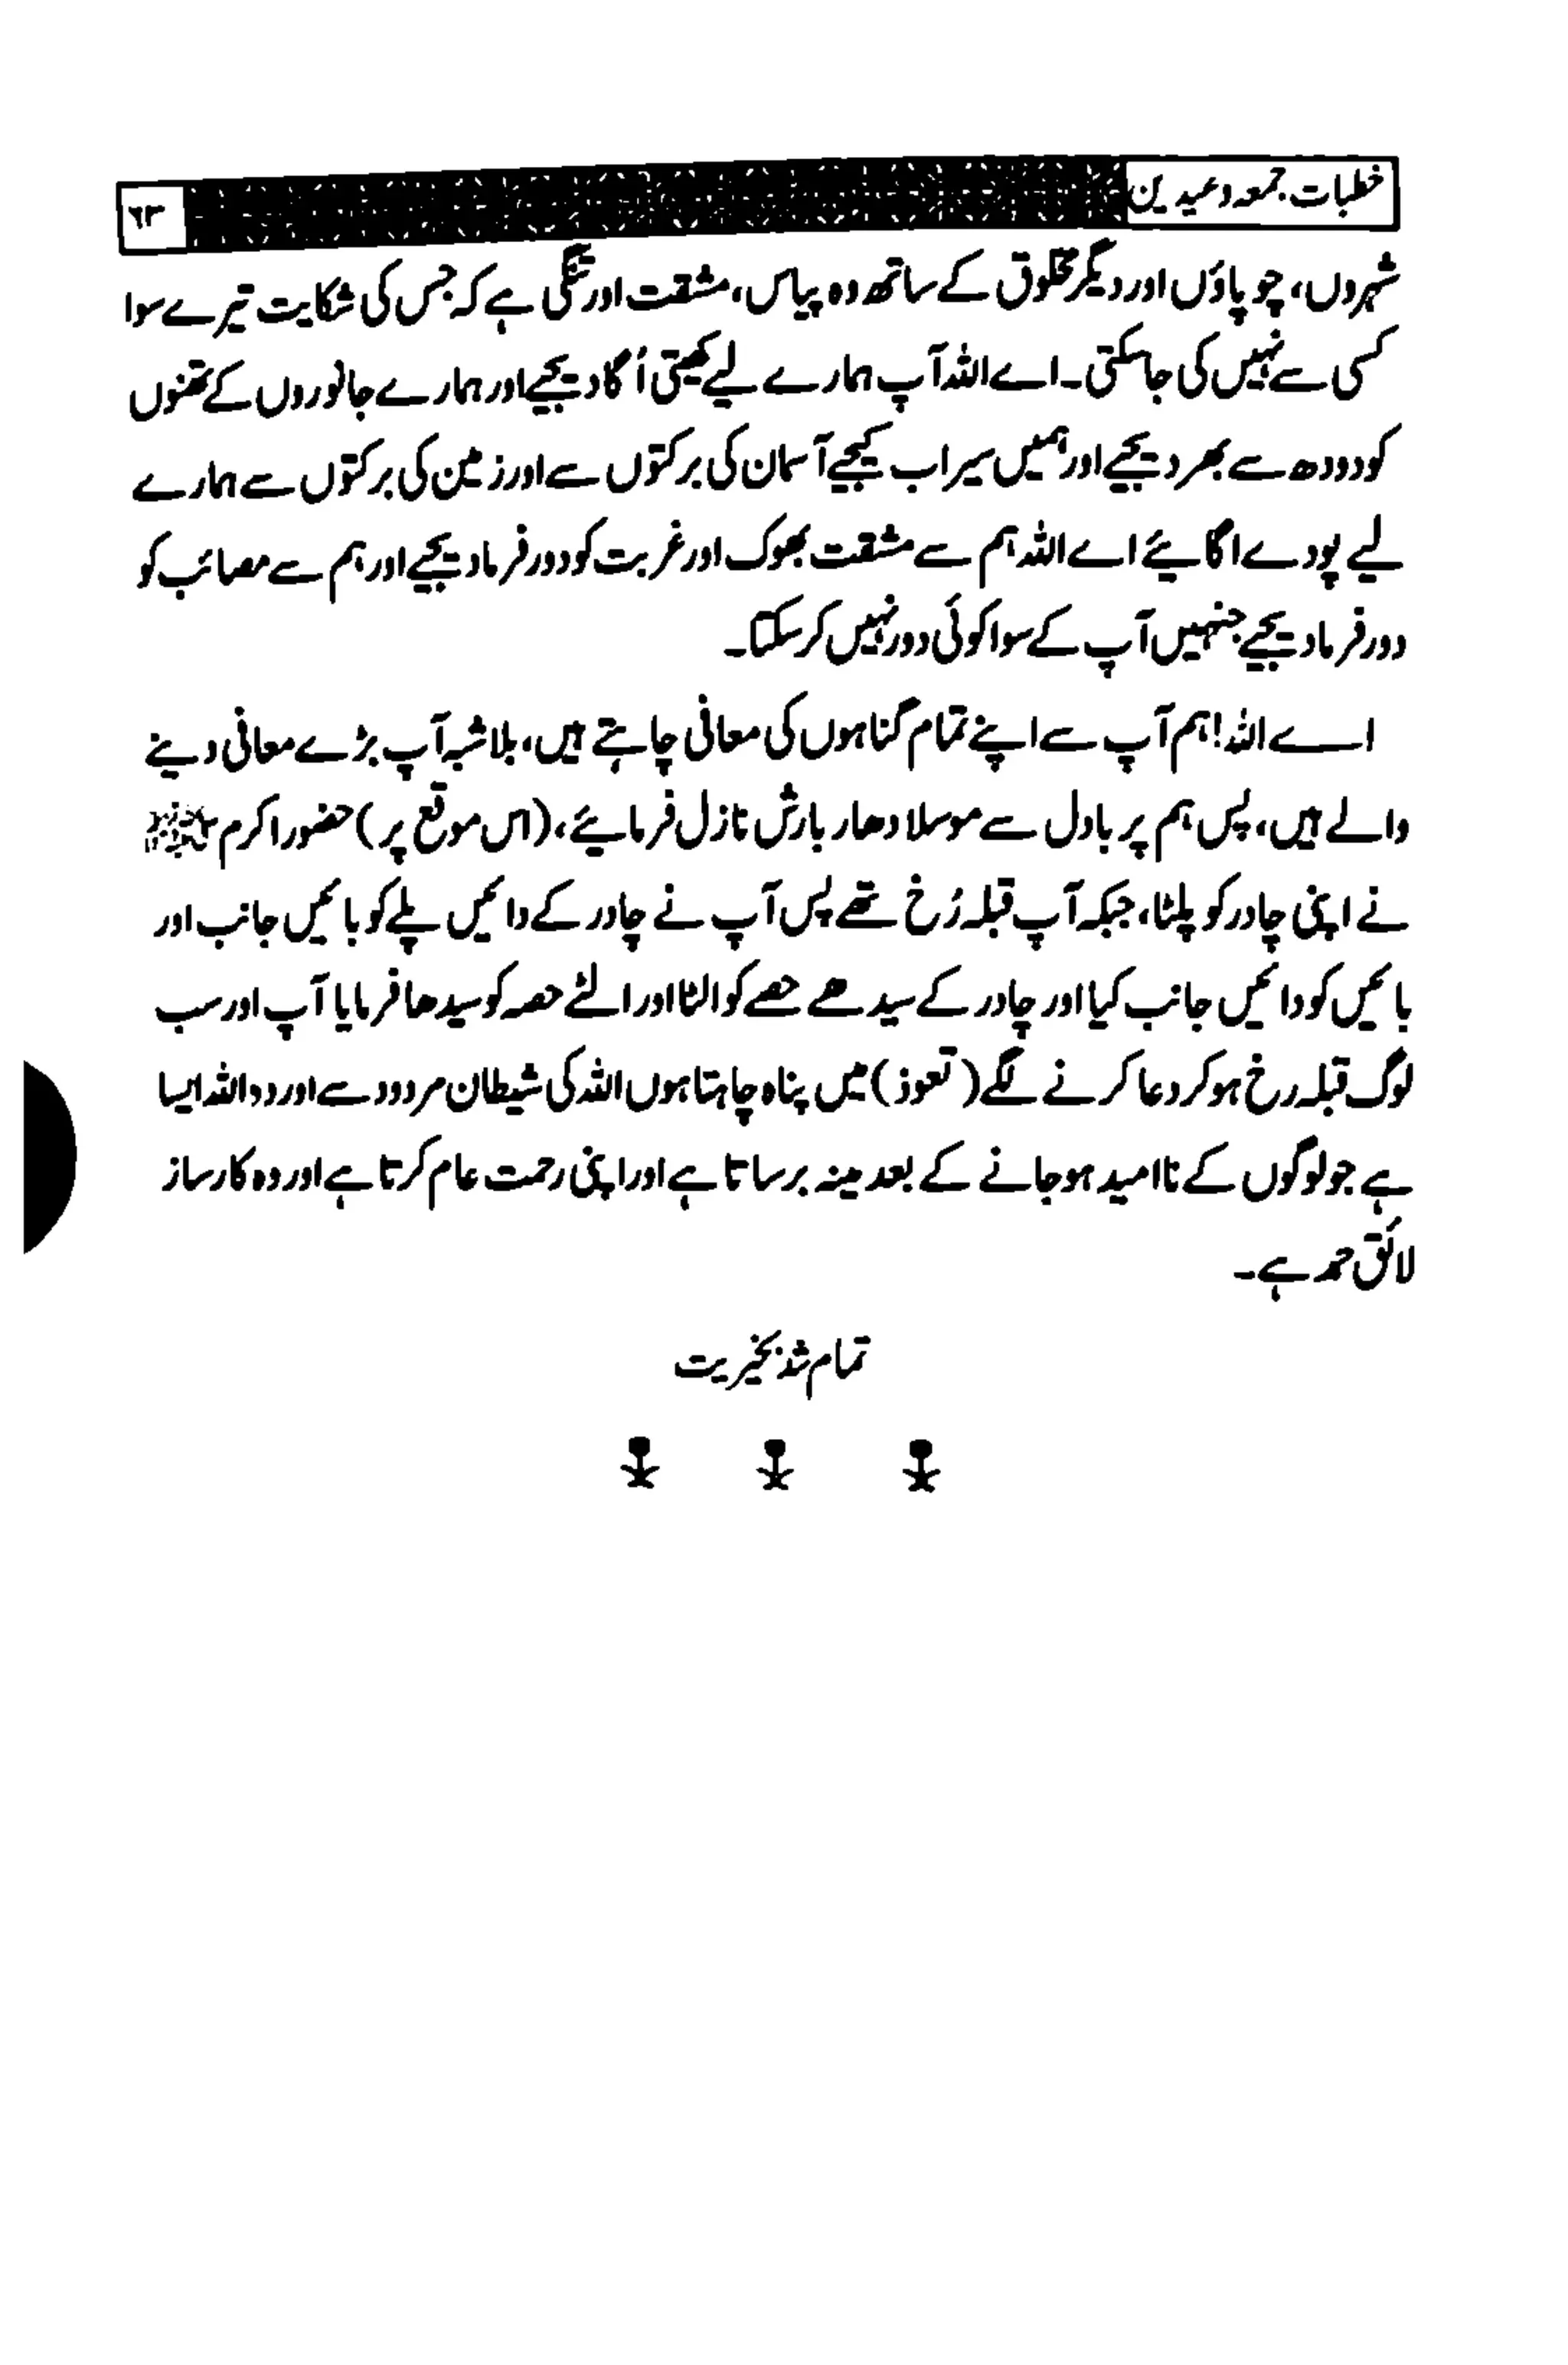 خطبات جمعہ و عیدین
۶۳
شہروں، چوپاؤں اور دیگر مخلوق کے ساتھ وہ پیاس، مشقت اور تنگی ہے کہ جس کی شکایت تیرے سوا
کسی سے نہیں کی جاسکتی۔ اے اللہ آپ ہمارے لیے کھیتی اُگا دیجیے اور ہمارے جانوروں کے تھنوں
کو دودھ سے بھر دیجیے اور ہمیں سیراب کیجیے آسمان کی برکتوں سے اور زمین کی برکتوں سے ہمارے
لیے پودے اگائیے اے اللہ ہم سے مشقت بھوک اور غربت کو دور فرما دیجیے اور ہم سے مصائب کو
دور فرما دیجیے جنہیں آپ کے سوا کوئی دور نہیں کر سکتا۔
اے اللہ! ہم آپ سے اپنے تمام گناہوں کی معافی چاہتے ہیں، بلاشبہ آپ بڑے معافی دینے
والے ہیں، پس ہم پر بادل سے موسلا دھار بارش نازل فرمائیے، (اس موقع پر) حضور اکرم ﷺ
نے اپنی چادر کو پلٹا، جبکہ آپ قبلہ رُخ تھے پس آپ نے چادر کے دائیں پلے کو بائیں جانب اور
بائیں کو دائیں جانب کیا اور چادر کے سیدھے حصے کو الٹا اور الٹے حصہ کو سیدھا فرمایا آپ اور سب
لوگ قبلہ رخ ہو کر دعا کرنے لگے (تعوذ) میں پناہ چاہتا ہوں اللہ کی شیطان مردود سے اور وہ اللہ ایسا
ہے جو لوگوں کے ناامید ہو جانے کے بعد مینہ برساتا ہے اور اپنی رحمت عام کرتا ہے اور وہ کارساز
لائق حمد ہے۔
تمام شد بخیریت